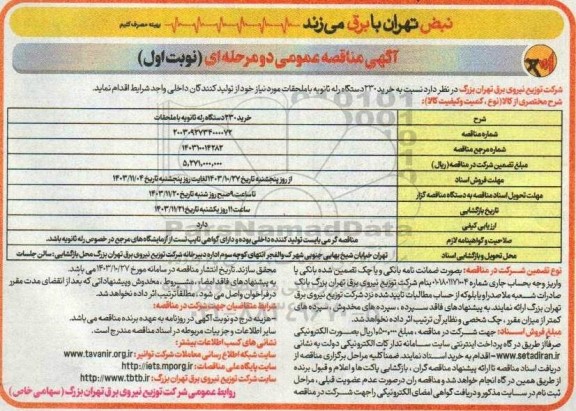 نبض تهران با برق می زند
بهینه مصرف کنیم
آگهی مناقصه عمومی دو مرحله ای (نوبت اول)
شرکت توزیع نیروی برق تهران بزرگ در نظر دارد نسبت به خرید ۲۳۰ دستگاه رله ثانویه با ملحقات مورد نیاز خود از تولید کنندگان داخلی واجد شرایط اقدام نماید.
شرح مختصری از کالا (نوع ، کمیت وکیفیت کالا):
شرح خرید ۲۳۰ دستگاه رله ثانویه با ملحقات
شماره مناقصه ۲۰۰۳۰۹۲۷۳۴۰۰۰۰۷۲
شماره مرجع مناقصه ۱۴۰۳۱۰۰۱۴۲۸۲
مبلغ تضمین شرکت در مناقصه (ریال) ۵,۲۷۱,۰۰۰,۰۰۰
مهلت فروش اسناد از روز پنجشنبه تاریخ ۱۴۰۳/۱۰/۲۷ لغایت روز پنجشنبه تاریخ ۱۴۰۳/۱۱/۰۴
مهلت تحویل اسناد مناقصه به دستگاه مناقصه گزار تا ساعت ۹ صبح روز شنبه تاریخ ۱۴۰۳/۱۱/۲۰
تاریخ بازگشایی ساعت ۱۱ روز یکشنبه تاریخ ۱۴۰۳/۱۱/۲۱
ارزیابی کیفی دارد
صلاحیت و گواهینامه لازم مناقصه گر می بایست تولید کننده داخلی بوده و دارای گواهی تایپ تست از آزمایشگاه های مرجع در خصوص رله ثانویه باشد.
محل تحویل و بازگشایی اسناد تهران خیابان شیخ بهایی جنوبی شهرک والفجر انتهای کوچه سوم اداره دبیرخانه شرکت توزیع نیروی برق تهران بزرگ محل بازگشایی: سالن جلسات
نوع تضمین شرکت در مناقصه: بصورت ضمانت نامه بانکی و یا چک تضمین شده بانکی یا
واریز وجه بحساب جاری شماره ۰۱۰۱۸۰۱۱۷۱۰۰۴ بنام شرکت توزیع نیروی برق تهران بزرگ بانک
صادرات شعبه ملاصدرا و یا بلوکه از حساب مطالبات تایید شده نزد شرکت توزیع نیروی برق
تهران بزرگ ارائه نمایند. به پیشنهادهای فاقد سپرده ، سپرده های مخدوش، سپرده های
کمتر از میزان مقرر، چک شخصی و نظایر آن ترتیب اثر داده نخواهد شد.
مبلغ فروش اسناد: جهت شرکت در مناقصه ، مبلغ ریال بصورت الکترونیکی
صرفاً از طریق درگاه پرداخت اینترنتی سایت سامانه تدارکات الکترونیکی دولت به نشانی
www.setadiran.ir – اقدام به خرید اسناد نمایند. ضمنا کلیه مراحل برگزاری مناقصه از
دریافت اسناد مناقصه تا ارائه پیشنهاد مناقصه گران ، بازگشایی پاکت ها و اعلام و قبول برنده
از طریق همین درگاه انجام خواهد شد و مناقصه گران در صورت عدم عضویت قبلی ، مراحل
ثبت نام در سایت مذکور و دریافت گواهی امضای الکترونیکی را جهت شرکت در مناقصه
محقق سازند. تاریخ انتشار مناقصه در سامانه مورخ ۱۴۰۳/۱۰/۲۷ می باشد.
به پیشنهادهای فاقد امضا، مشروط، مخدوش و پیشنهاداتی که بعد از انقضای مدت مقرر
در فراخوان واصل می شود، مطلقا ترتیب اثر داده نخواهد شد.
شرایط متقاضیان جهت شرکت در مناقصه:
هزینه درج دو نوبت آگهی در روزنامه به عهده برنده مناقصه می باشد.
سایر اطلاعات و جزییات مربوطه در اسناد مناقصه مندرج است.
نشانی های کسب اطلاعات بیشتر:
سایت شبکه اطلاع رسانی معاملات شرکت توانیر: www.tavanir.org.ir
سایت پایگاه ملی مناقصات: http://iets.mporg.ir
سایت شرکت توزیع نیروی برق تهران بزرگ: http://www.tbtb.ir
روابط عمومی شرکت توزیع نیروی برق تهران بزرگ (سهامی خاص)
ParsNamadData